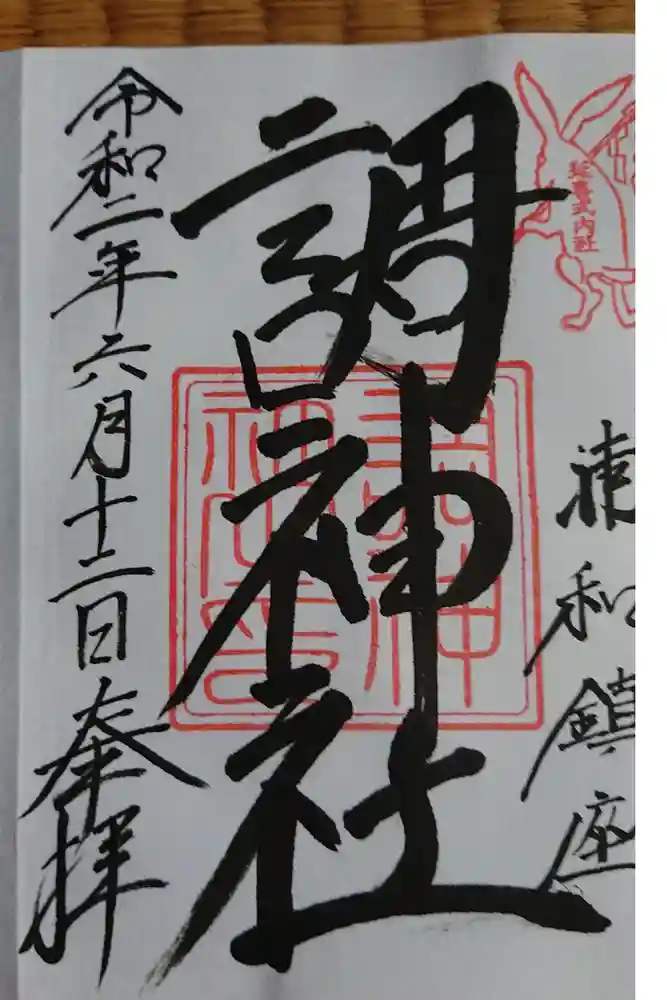 延喜式内社
浦和鎮座
調神社
調神社印
令和二年六月十二日奉拝